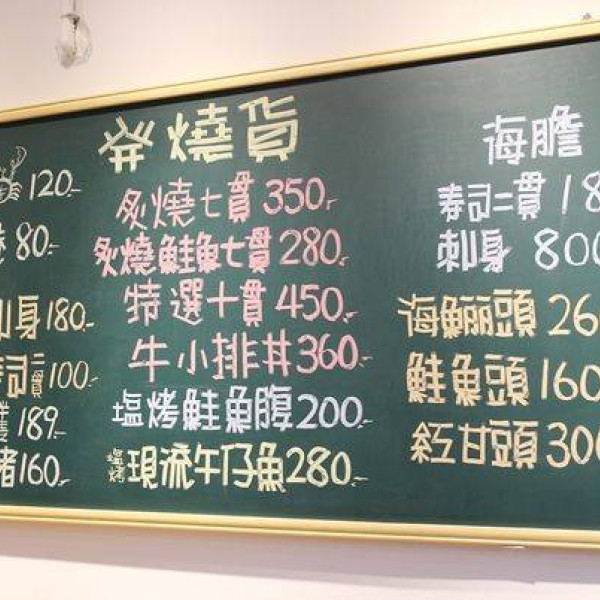 120.-
80.-
身 180.-
司二貫 100.-
189.-
160.-
癸燒貨
炙燒七貫 350.-
炙燒鮭魚七貫 280.-
特選十貫 450.-
牛小排丼 360.-
塩烤鮭魚腹 200.-
塩烤 現流午仔魚 280.-
海膽
寿司二貫 18
刺身 800
海鱺頭 26
鮭魚頭 160
紅甘頭 300